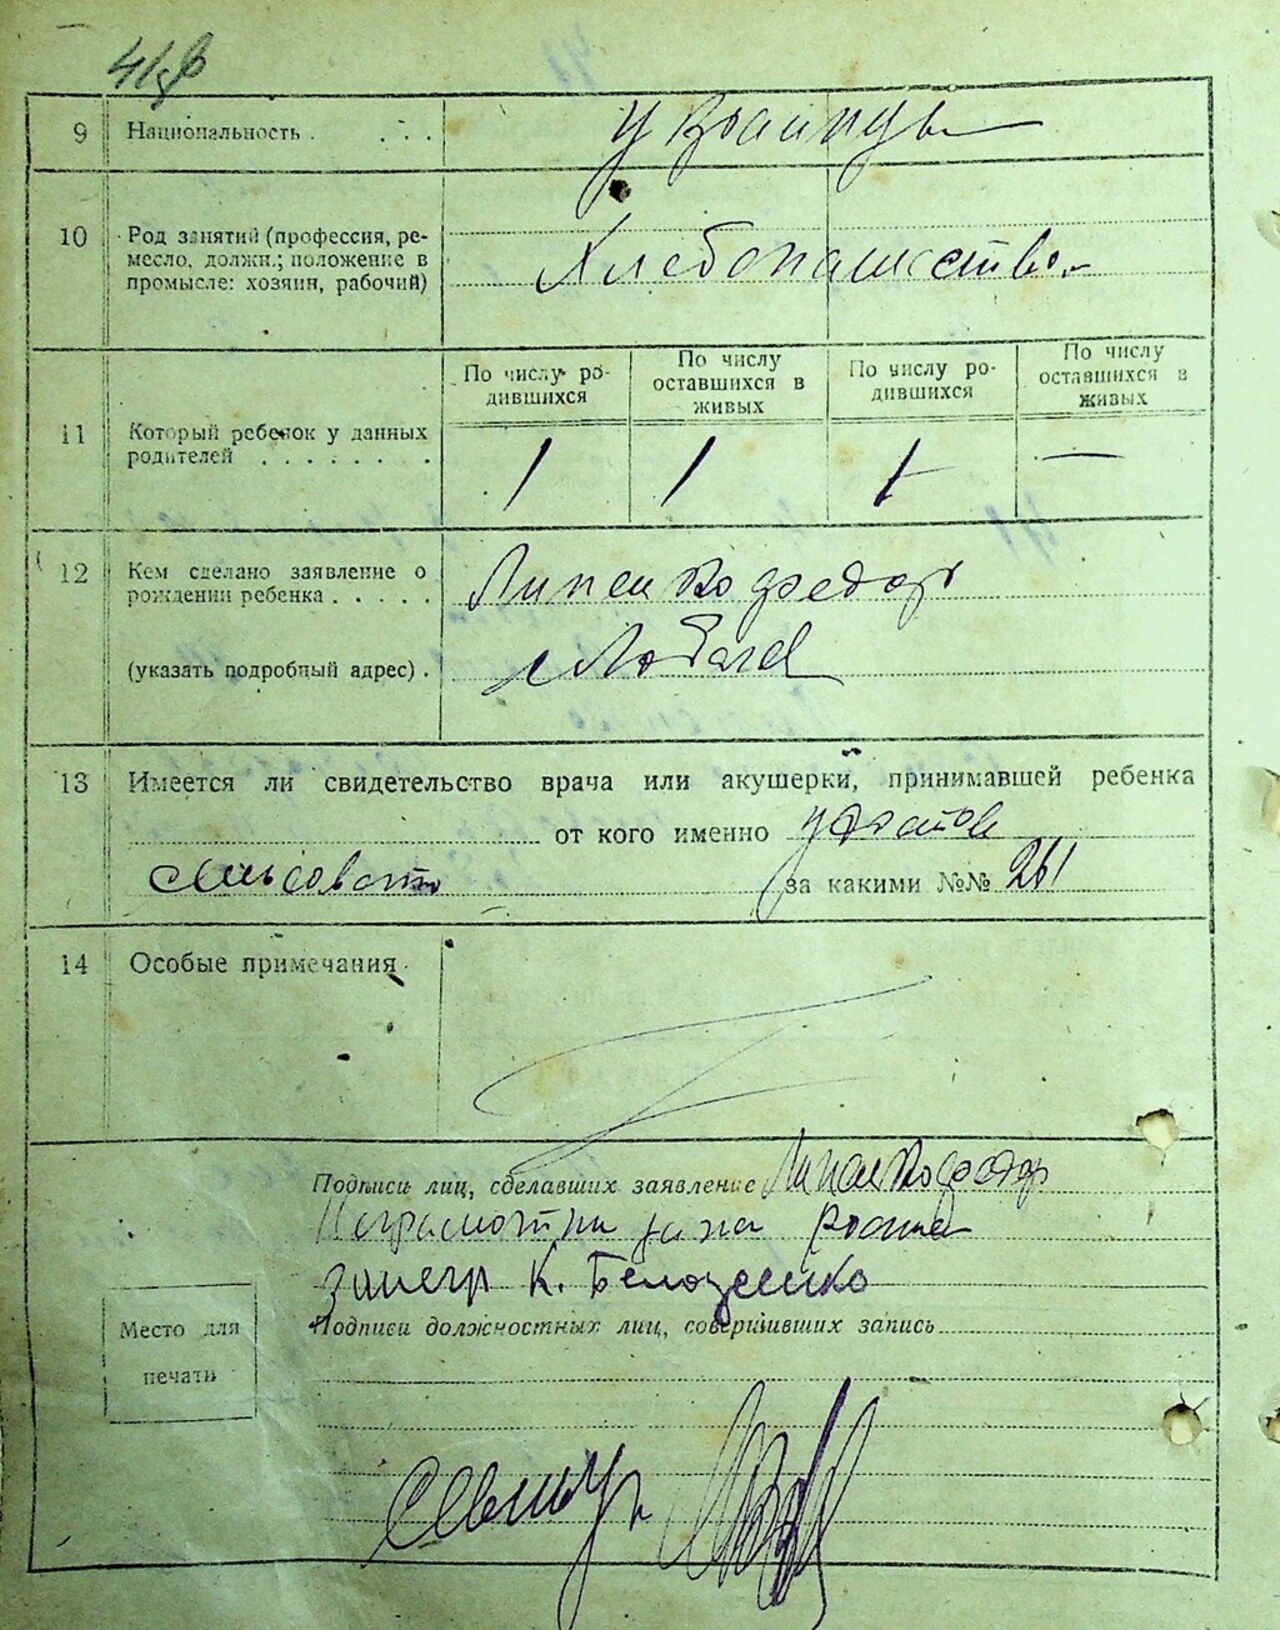 9 Национальность . . . . украинцы
10 Род занятий (профессия, ре-
месло, должн.; положение в
промысле: хозяин, рабочий)
Хлебопашество
По числу ро-
дившихся
По числу
оставшихся в
живых
По числу ро-
дившихся
По числу
оставшихся в
живых
11 Который ребенок у данных
родителей . . . . . . .
1 1 1 —
12 Кем сделано заявление о
рождении ребенка . . . . .
Липенко Федор
(указать подробный адрес) .
13 Имеется ли свидетельство врача или акушерки, принимавшей ребенка
от кого именно
за какими №№ 261
14 Особые примечания
Подписи лиц, сделавших заявление Липенко Федор
Неграмотни за них
К. Белоусенко
Место для
печати
Подписи должностных лиц, совершивших запись